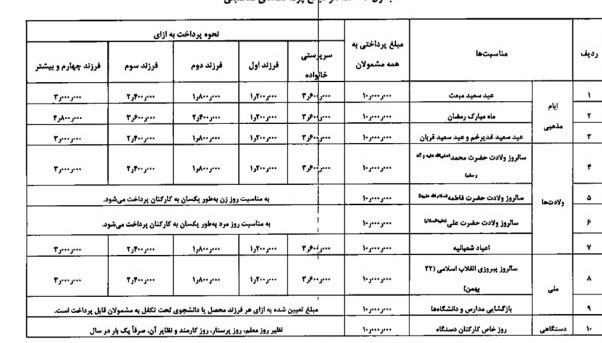 ردیف مناسبت‌ها مبلغ پرداختی به همه مشمولان نحوه پرداخت به ازای
سرپرستی خانواده فرزند اول فرزند دوم فرزند سوم فرزند چهارم و بیشتر
ایام مذهبی
۱ عید سعید مبعث ۱۰٫۰۰۰٫۰۰۰ ۳٫۶۰۰٫۰۰۰ ۱٫۲۰۰٫۰۰۰ ۱٫۸۰۰٫۰۰۰ ۲٫۴۰۰٫۰۰۰ ۳٫۰۰۰٫۰۰۰
۲ ماه مبارک رمضان ۱۰٫۰۰۰٫۰۰۰ ۳٫۶۰۰٫۰۰۰ ۱٫۲۰۰٫۰۰۰ ۲٫۴۰۰٫۰۰۰ ۳٫۶۰۰٫۰۰۰ ۴٫۸۰۰٫۰۰۰
۳ عید سعید غدیرخم و عید سعید قربان ۱۰٫۰۰۰٫۰۰۰ ۳٫۶۰۰٫۰۰۰ ۱٫۲۰۰٫۰۰۰ ۱٫۸۰۰٫۰۰۰ ۲٫۴۰۰٫۰۰۰ ۳٫۰۰۰٫۰۰۰
ولادت‌ها
۴ سالروز ولادت حضرت محمد (صلی‌الله علیه و آله و سلم) ۱۰٫۰۰۰٫۰۰۰ ۳٫۶۰۰٫۰۰۰ ۱٫۲۰۰٫۰۰۰ ۱٫۸۰۰٫۰۰۰ ۲٫۴۰۰٫۰۰۰ ۳٫۰۰۰٫۰۰۰
۵ سالروز ولادت حضرت فاطمه (سلام‌الله علیها) ۱۰٫۰۰۰٫۰۰۰ به مناسبت روز زن به‌طور یکسان به کارکنان پرداخت می‌شود.
۶ سالروز ولادت حضرت علی (علیه‌السلام) ۱۰٫۰۰۰٫۰۰۰ به مناسبت روز مرد به‌طور یکسان به کارکنان پرداخت می‌شود.
۷ اعیاد شعبانیه ۱۰٫۰۰۰٫۰۰۰ ۳٫۶۰۰٫۰۰۰ ۱٫۲۰۰٫۰۰۰ ۱٫۸۰۰٫۰۰۰ ۲٫۴۰۰٫۰۰۰ ۳٫۰۰۰٫۰۰۰
ملی
۸ سالروز پیروزی انقلاب اسلامی (۲۲ بهمن) ۱۰٫۰۰۰٫۰۰۰ ۳٫۶۰۰٫۰۰۰ ۱٫۲۰۰٫۰۰۰ ۱٫۸۰۰٫۰۰۰ ۲٫۴۰۰٫۰۰۰ ۳٫۰۰۰٫۰۰۰
۹ بازگشایی مدارس و دانشگاه‌ها ۱۰٫۰۰۰٫۰۰۰ مبلغ تعیین شده به ازای هر فرزند محصل یا دانشجوی تحت تکفل به مشمولان قابل پرداخت است.
دستگاهی
۱۰ روز خاص کارکنان دستگاه ۱۰٫۰۰۰٫۰۰۰ نظیر روز معلم، روز پرستار، روز کارمند و نظایر آن، صرفاً یک بار در سال